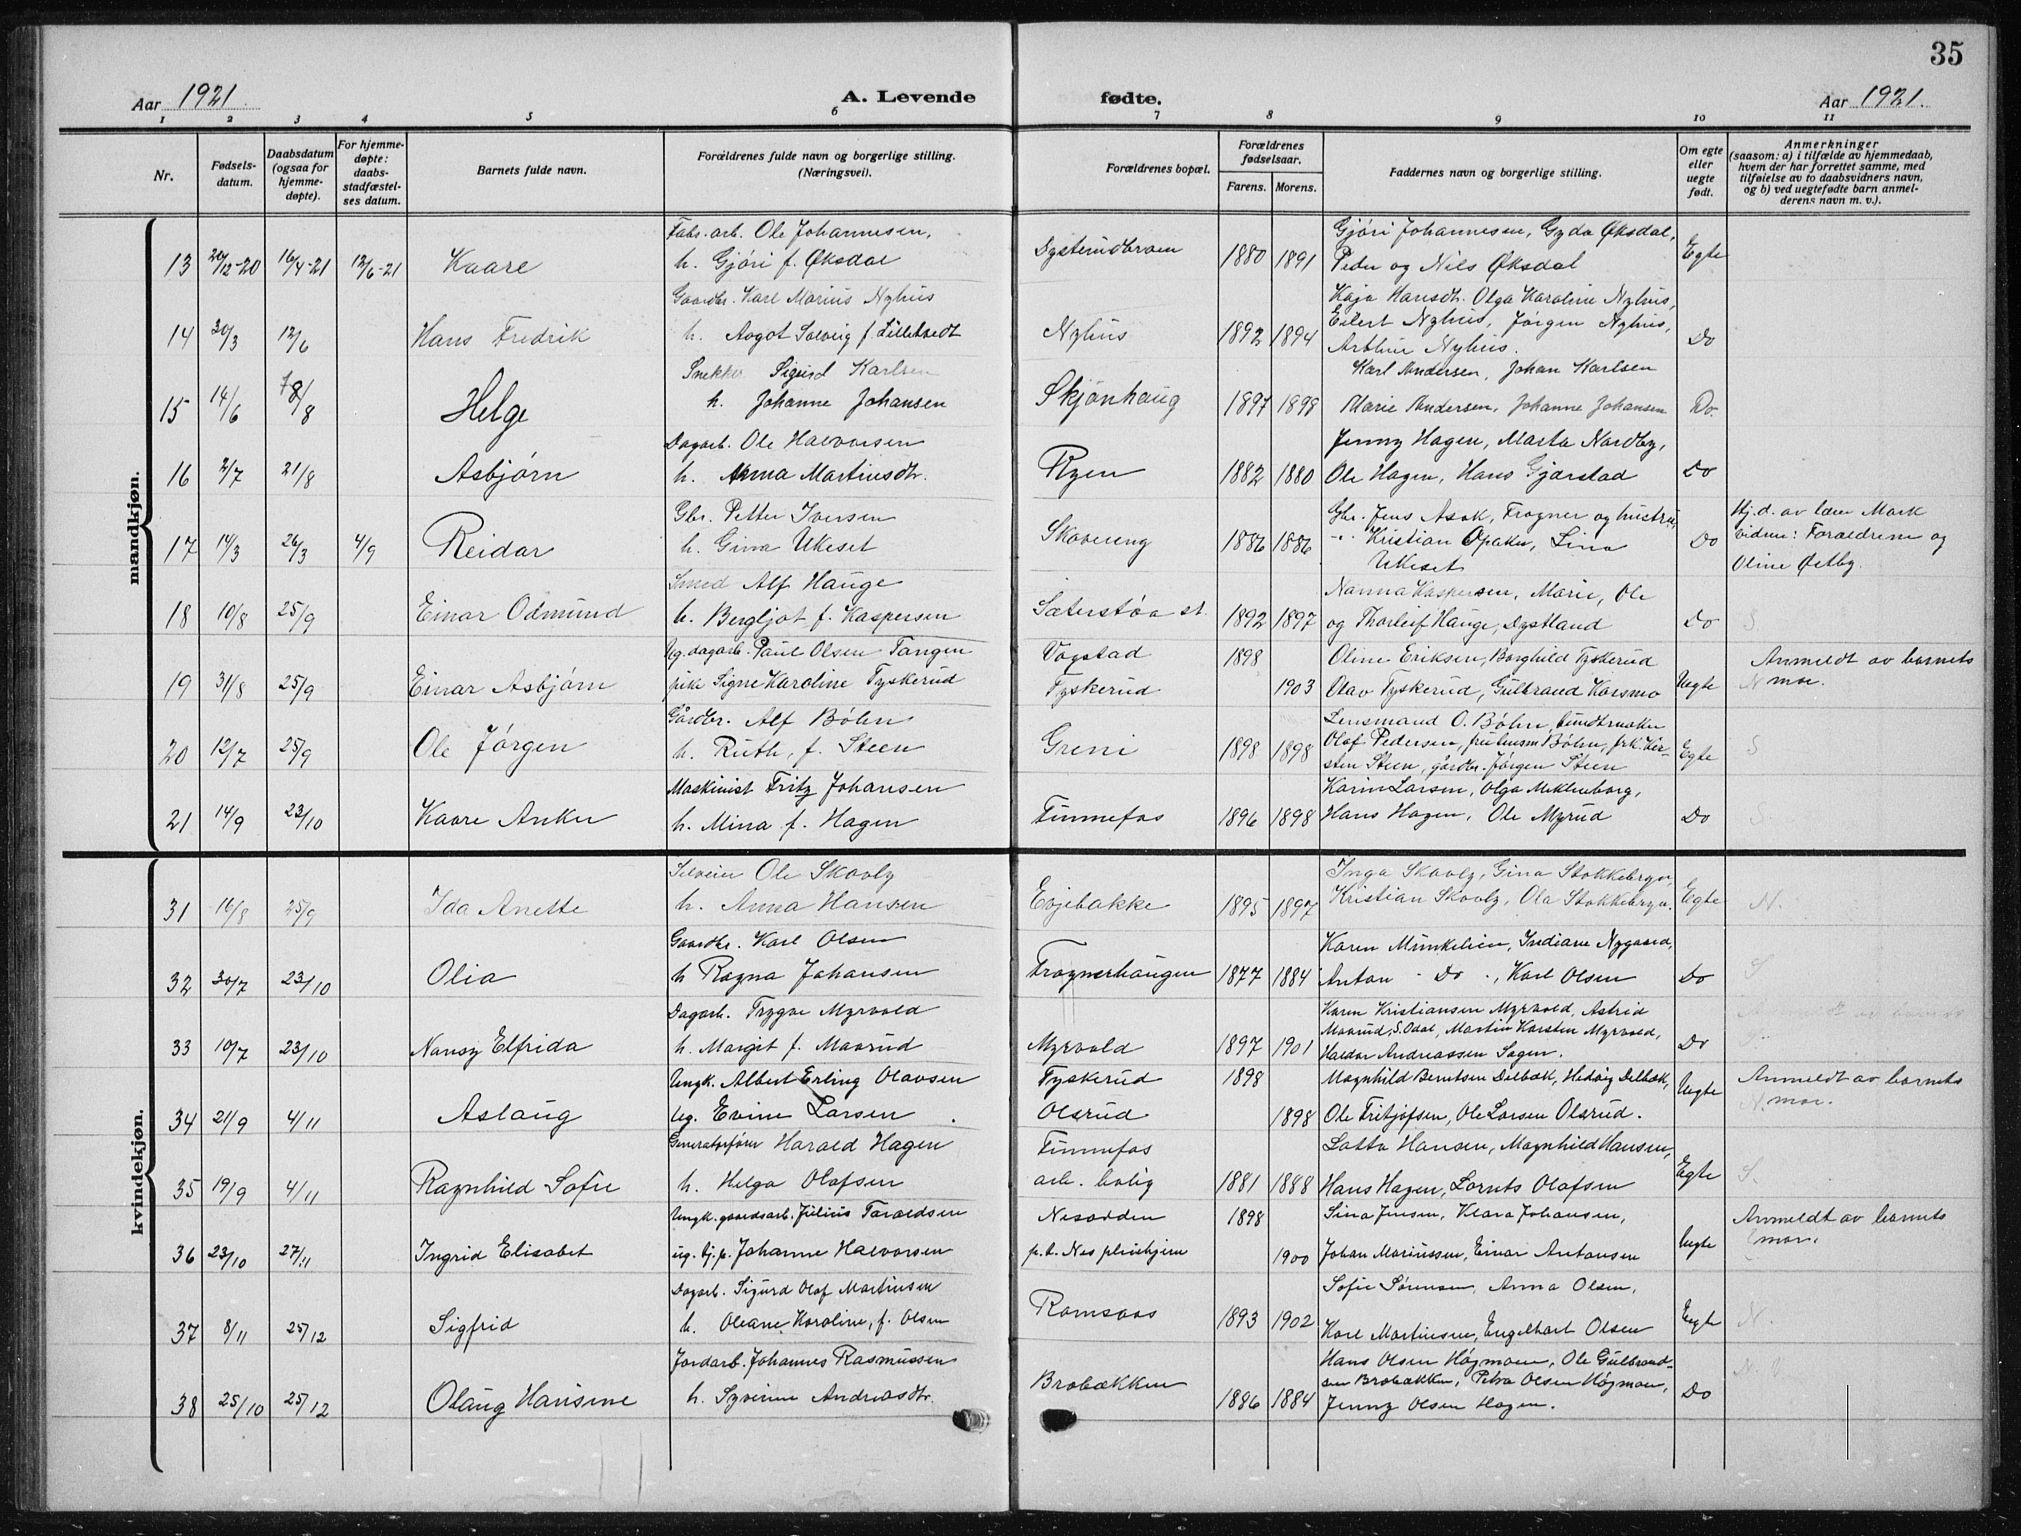 35
Aar 1921. A. Levende fødte. Aar 1921.
1 2 3 4 5 6 7 8 9 10 11
Nr. Fødsels-datum. Daabsdatum (ogsaa for hjemme-døpte). For hjemme-døpte: daabs-stadfæstel-ses datum. Barnets fulde navn. Forældrenes fulde navn og borgerlige stilling. (Næringsvei). Forældrenes bopæl. Forældrenes fødselsaar. Farens. Morens. Faddernes navn og borgerlige stilling. Om egte eller uegte født. Anmerkninger (saasom: a) i tilfælde av hjemmedaab, hvem der har forrettet samme, med tilføielse av to daabsvidners navn, og b) ved uegtefødte barn anmel-derens navn m. v.).
mandkjøn.
Fabr. arb. Ole Johannesen, Gjøri Johannesen, Gyda Øksdal,
13 20/12-20 16/4-21 12/6-21 Kaare h. Gjøri f. Øksdal Dysterudbroen 1880 1891 Peder og Nils Øksdal Egte
Gaardbr. Karl Marius Nyhus Kaja Hansdtr. Olga Karoline Nyhus,
14 30/3 12/6 Hans Fredrik h. Aagot Solveig f. Lilletvedt Nyhus 1892 1894 Eilert Nyhus, Jørgen Nyhus, Do
Arthur Nyhus.
Snekker Sigurd Karlsen Karl Andersen, Johan Karlsen
15 14/6 /8 Helge h. Johanne Johansen Skjønhaug 1897 1898 Marie Andersen, Johanne Johansen Do.
Dagarb. Ole Halvorsen Jenny Hagen, Marta Nordby,
16 2/7 21/8 Asbjørn h. Anna Martinsdtr. Ryen 1882 1880 Ole Hagen, Hans Gjørstad Do
Gbr. Petter Iversen Gbr. Jens Asak, Frogner og hustru Hj.d. av lærer Mork
17 14/3 26/3 4/9 Reidar h. Gina Ukeset Skovereng 1886 1886 Kristian Opaker, Lina Ukeset Do vidner: Forældrene og Oline Østby.
Smed Alf Hauge Nanna Kaspersen, Marie, Ole
18 10/8 25/9 Einar Odmund h. Bergljot f. Kaspersen Sæterstøa st. 1892 1897 og Thorleif Hauge, Dystland Do S
Ug. dagarb. Paul Olsen Tangen Vogstad 1898 Oline Eriksen, Borghild Tyskerud Anmeldt av barnets
19 31/8 25/9 Einar Asbjørn pike Signe Karoline Tyskerud Tyskerud 1903 Olav Tyskerud, Gulbrand Korsmo Uegte N mor.
Gårdbr. Alf Bøhn Lensmand O. Bøhn, buntmaker
20 12/7 25/9 Ole Jørgen h. Ruth, f. Steen Greni 1898 1898 Olaf Pedersen, Bøhn, frk. Kir- Egte S
sten Steen, gårdbr. Jørgen Steen
Maskinist Fritz Johansen Karin Larsen, Olga Meklenborg,
21 14/9 23/10 Kaare Anker h. Mina f. Hagen Funnefos 1896 1898 Hans Hagen, Ole Myrud Do S
kvindekjøn.
Ole Skovly Inga Skovly, Gina Stokkebryn,
31 16/8 25/9 Ida Anette h. Anna Hansen Evjebakke 1895 1897 Kristian Skovly, Ola Stokkebryn. Egte N.
Gaardbr. Karl Olsen Karen Munkelien, Indiane Nygaard,
32 30/7 23/10 Olia h Ragna Johansen Frognerhaugen 1877 1884 Anton - Do -, Karl Olsen Do S
Dagarb. Trygve Myrvold Karen Kristiansen Myrvold, Astrid
33 10/7 23/10 Nansy Elfrida h. Margit f. Maarud Myrvold 1897 1901 Maarud, S. Odal, Martin Karsten Myrvold, Do
Haldor Andreassen Sagen.
Ungk. Albert Erling Olavsen Tyskerud 1898 Magnhild Berntsen Delbæk, Hedvig Delbæk, Anmeldt av barnets
34 21/9 4/11 Aslaug Ug. Evine Larsen Olsrud 1898 Ole Fritjofsen, Ole Larsen Olsrud. Uegte N. mor.
Harald Hagen Funnefos Lotta Hansen, Magnhild Hansen,
35 19/9 4/11 Ragnhild Sofie h. Helga Olafsen arb. bolig 1881 1888 Hans Hagen, Lornts Olafsen Egte S.
Ungk. gaardsarb. Julius Taraldsen Nesodden 1898 Lina Jensen, Klara Johansen, Anmeldt av barnets
36 23/10 27/11 Ingrid Elisabet ug. tj. p. Johanne Halvorsen p.t. Nes pleiehjem 1900 Johan Mariussen, Einar Antonsen Uegte mor.
Dagarb. Sigurd Olaf Martinsen Sofie Sørensen, Anna Olsen,
37 8/11 25/12 Sigfrid h. Oleane Karoline, f. Olsen Romsaas 1893 1902 Karl Martinsen, Engelhart Olsen Egte N.
Jordarb. Johannes Rasmussen Hans Olsen Høgmoen, Ole Gulbrand-
38 25/10 25/12 Olaug Hansine h. Syverine Andreasdtr. Brobækken 1886 1884 sen Brobækken, Petra Olsen Høgmoen, Do
Jenny Olsen Hagen.